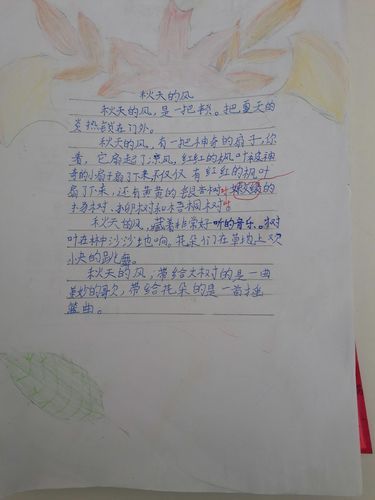 秋天的风
秋天的风,是一把锁。把夏天的
炎热锁在门外。
秋天的风,有一把神奇的扇子,你
看,它扇起了凉风,红红的枫叶被神
奇的小扇子扇了下来不仅仅有红红的枫叶
扇了下来,还有黄黄的银杏树叶嫩绿的
杨树、柳树和梧桐树叶
秋天的风,藏着非常好听的音乐。树
叶在林中沙沙地响。花朵们在草场上欢
快的跳舞。
秋天的风,带给大树的是一曲
美妙的歌,带给花朵的是一首摇
篮曲。